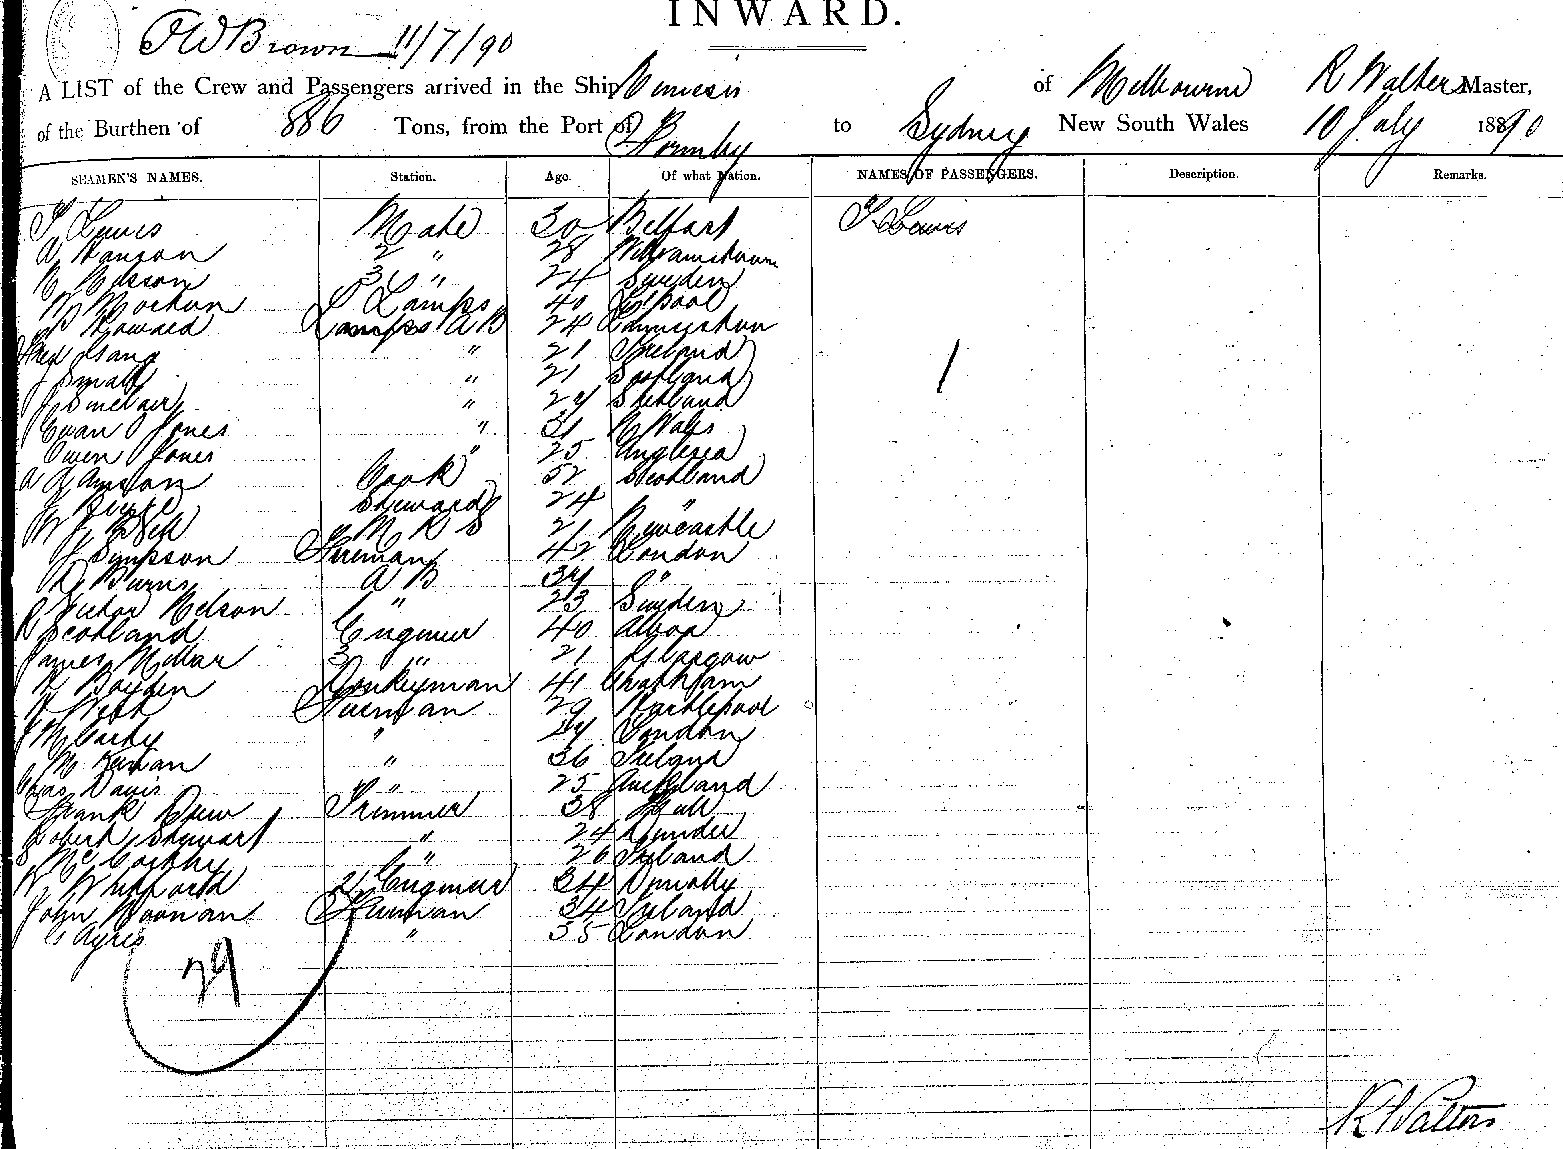 INWARD.
J W Brown 11/7/90
A LIST of the Crew and Passengers arrived in the Ship Nemesis of Melbourne R Walters Master,
of the Burthen of 886 Tons, from the Port of Formby to Sydney New South Wales 10 July 1890
SEAMEN'S NAMES. Station. Age. Of what Nation. NAMES OF PASSENGERS. Description. Remarks.
T Lewis Mate 30 Belfast T Lewis
A Hanson 2 " 28 Williamstown
N Nelson 3 " " 24 Sweden
W Morton Lamps 40 L'Pool
Howard Lamps A B 24 Launceston
Fred " 21 Ireland 1
J Small " 21 Scotland
J Sinclair " 24 Shetland
Evan Jones " 31 N Wales
Owen Jones " 25 Anglesea
A Adamson Cook 52 Scotland
J Steward 24 "
W J Bell M R S 21 Newcastle
J Simpson Fireman 42 London
R Burns A B 34 "
Victor Nelson " 23 Sweden
R Scotland Engineer 40 Alloa
James Millar 3 " 21 Glasgow
W Boyden Donkeyman 41 Chatham
W Webb Fireman 29 Hartlepool
J McCarthy " 24 London
M " 36 Ireland
Chas Davis " " 25 Auckland
Frank Drew Trimmer 38 Hull
Robert Stewart " 24 Dundee
McCarthy " 26 Ireland
W Whitford 2 Engineer 34
John Noonan Fireman 34 Ireland
Ayres " 35 London
29
R Walters